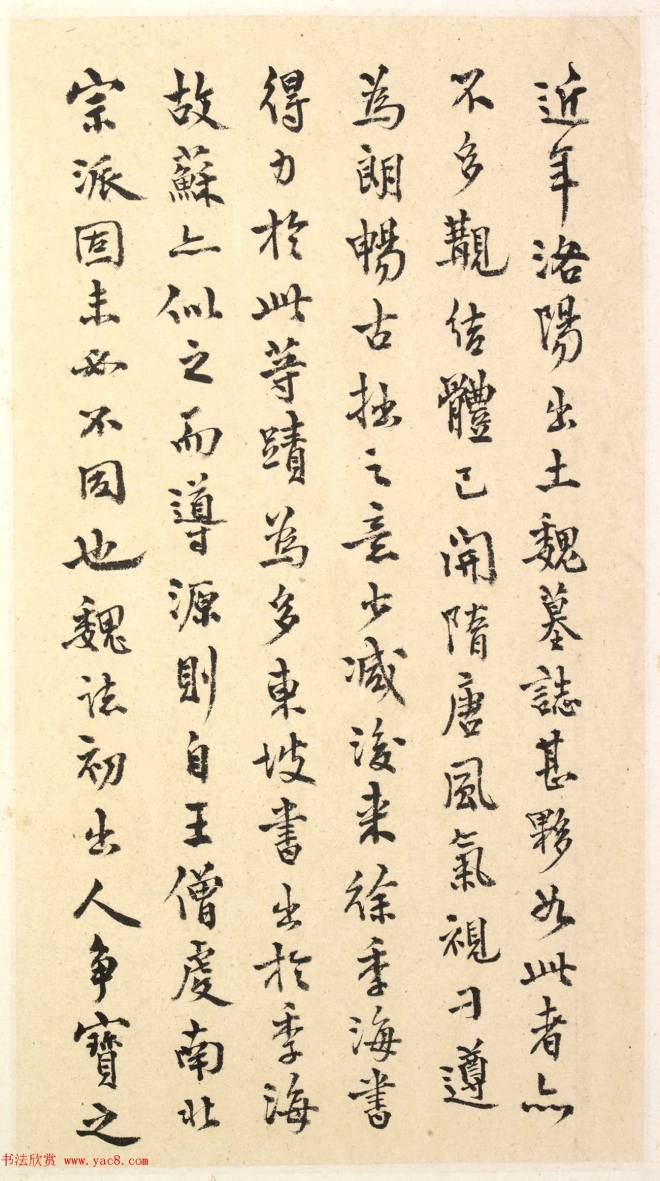 近年洛陽出土魏墓誌甚夥如此者亦
不多覯結體已開隋唐風氣視刁遵
為朗暢古拙之意少減後来徐季海書
得力於此等蹟為多東坡書出於季海
故蘇亦似之而導源則自王僧虔南北
宗派固未必不同也魏誌初出人争寶之
书法欣赏 www.yac8.com